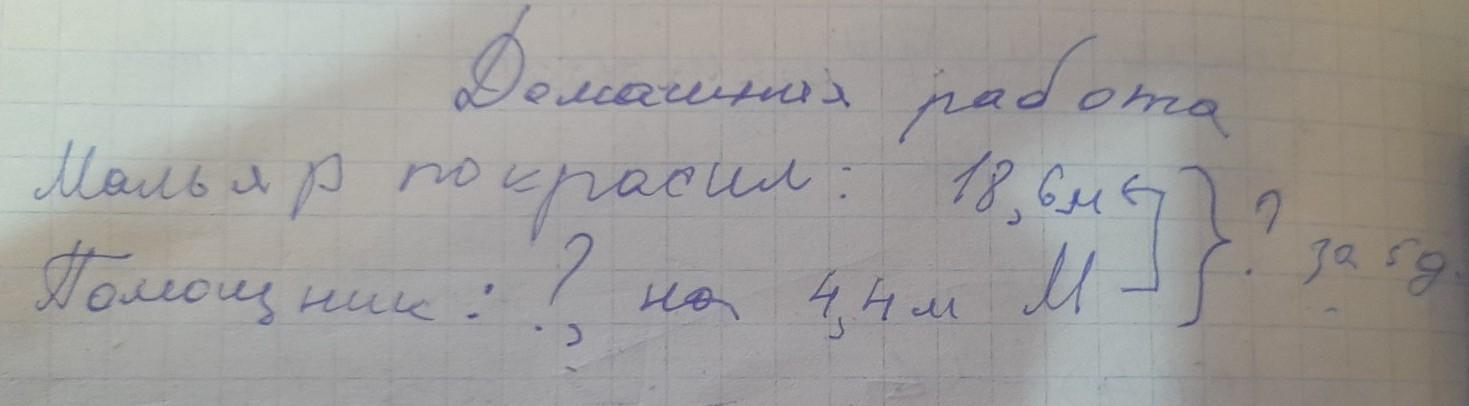 Домашняя работа
Маляр покрасил: 18,6м } ? за 5д.
Помощник: ?, на 4,4м М